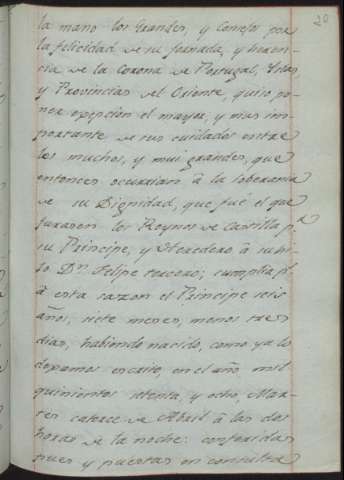 20
la mano los Grandes, y Consejo por
la felicidad de su jornada, y heren-
cia de la Corona de Portugal, Yslas,
y Provincias del Oriente, quiso po-
ner egepcion el mayor, y mas im-
portante de sus cuidados entre
los muchos, y mui grandes, que
entonces ocurrian â la soberania
de su Dignidad, que fué el que
jurasen los Reynos de Castilla pr.
su Principe, y Heredero â su hi-
jo Dn. Felipe tercero; cumplia pr.
â esta razon el Principe seis
años, siete meses, menos tres
dias, habiendo nacido, como ya lo
dexamos escrito, en el año mil
quinientos setenta, y ocho, Mar-
tes catorce de Abril â las dos
horas de la noche: conferidas
pues y puestas en consulta